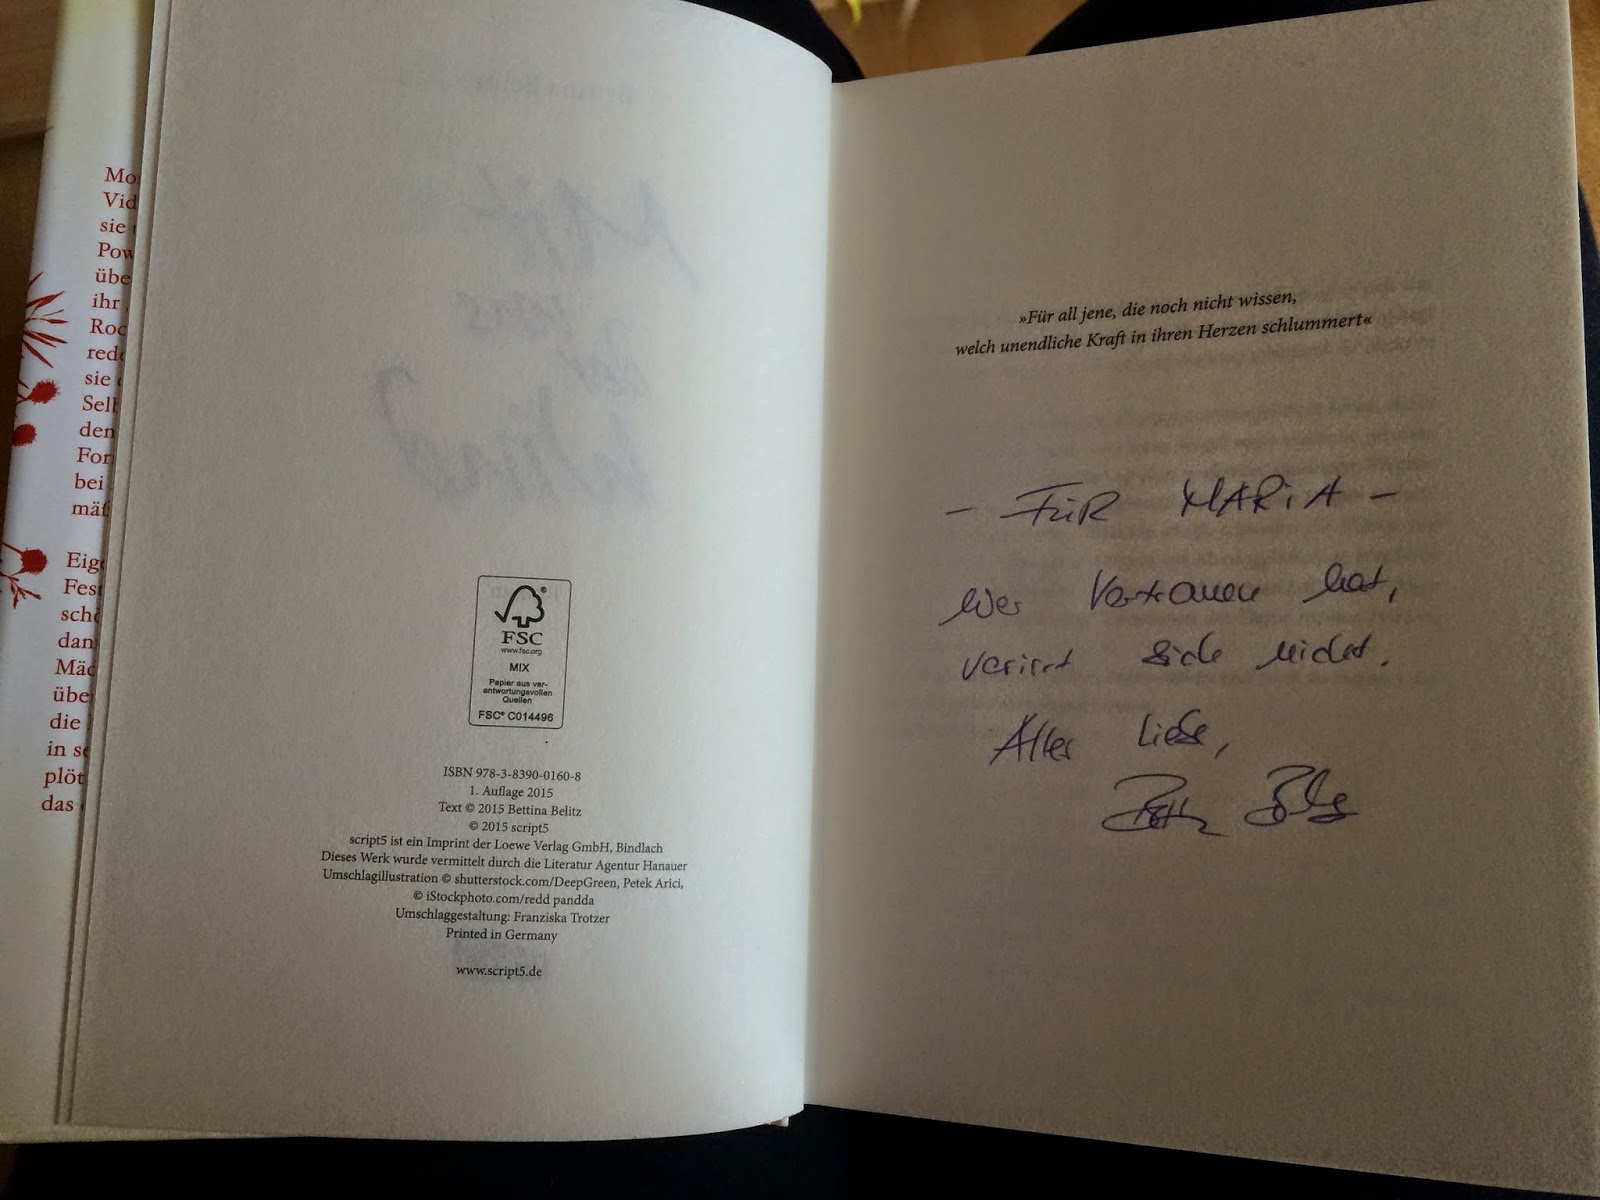 Vid
sie
Pow
übe
ihr
Roc
rede
sie
Selb
den
For
bei
mäß
Eige
Fest
schö
dan
Mäd
übe
die
in se
plöt
das
FSC®
www.fsc.org
MIX
Papier aus ver-
antwortungsvollen
Quellen
FSC® C014496
ISBN 978-3-8390-0160-8
1. Auflage 2015
Text © 2015 Bettina Belitz
© 2015 script5
script5 ist ein Imprint der Loewe Verlag GmbH, Bindlach
Dieses Werk wurde vermittelt durch die Literatur Agentur Hanauer
Umschlagillustration © shutterstock.com/DeepGreen, Petek Arici,
© iStockphoto.com/redd pandda
Umschlaggestaltung: Franziska Trotzer
Printed in Germany
www.script5.de
»Für all jene, die noch nicht wissen,
welch unendliche Kraft in ihren Herzen schlummert«
– FÜR MARiA –
Wer Vertrauen hat,
verirrt sich nicht.
Alles Liebe,